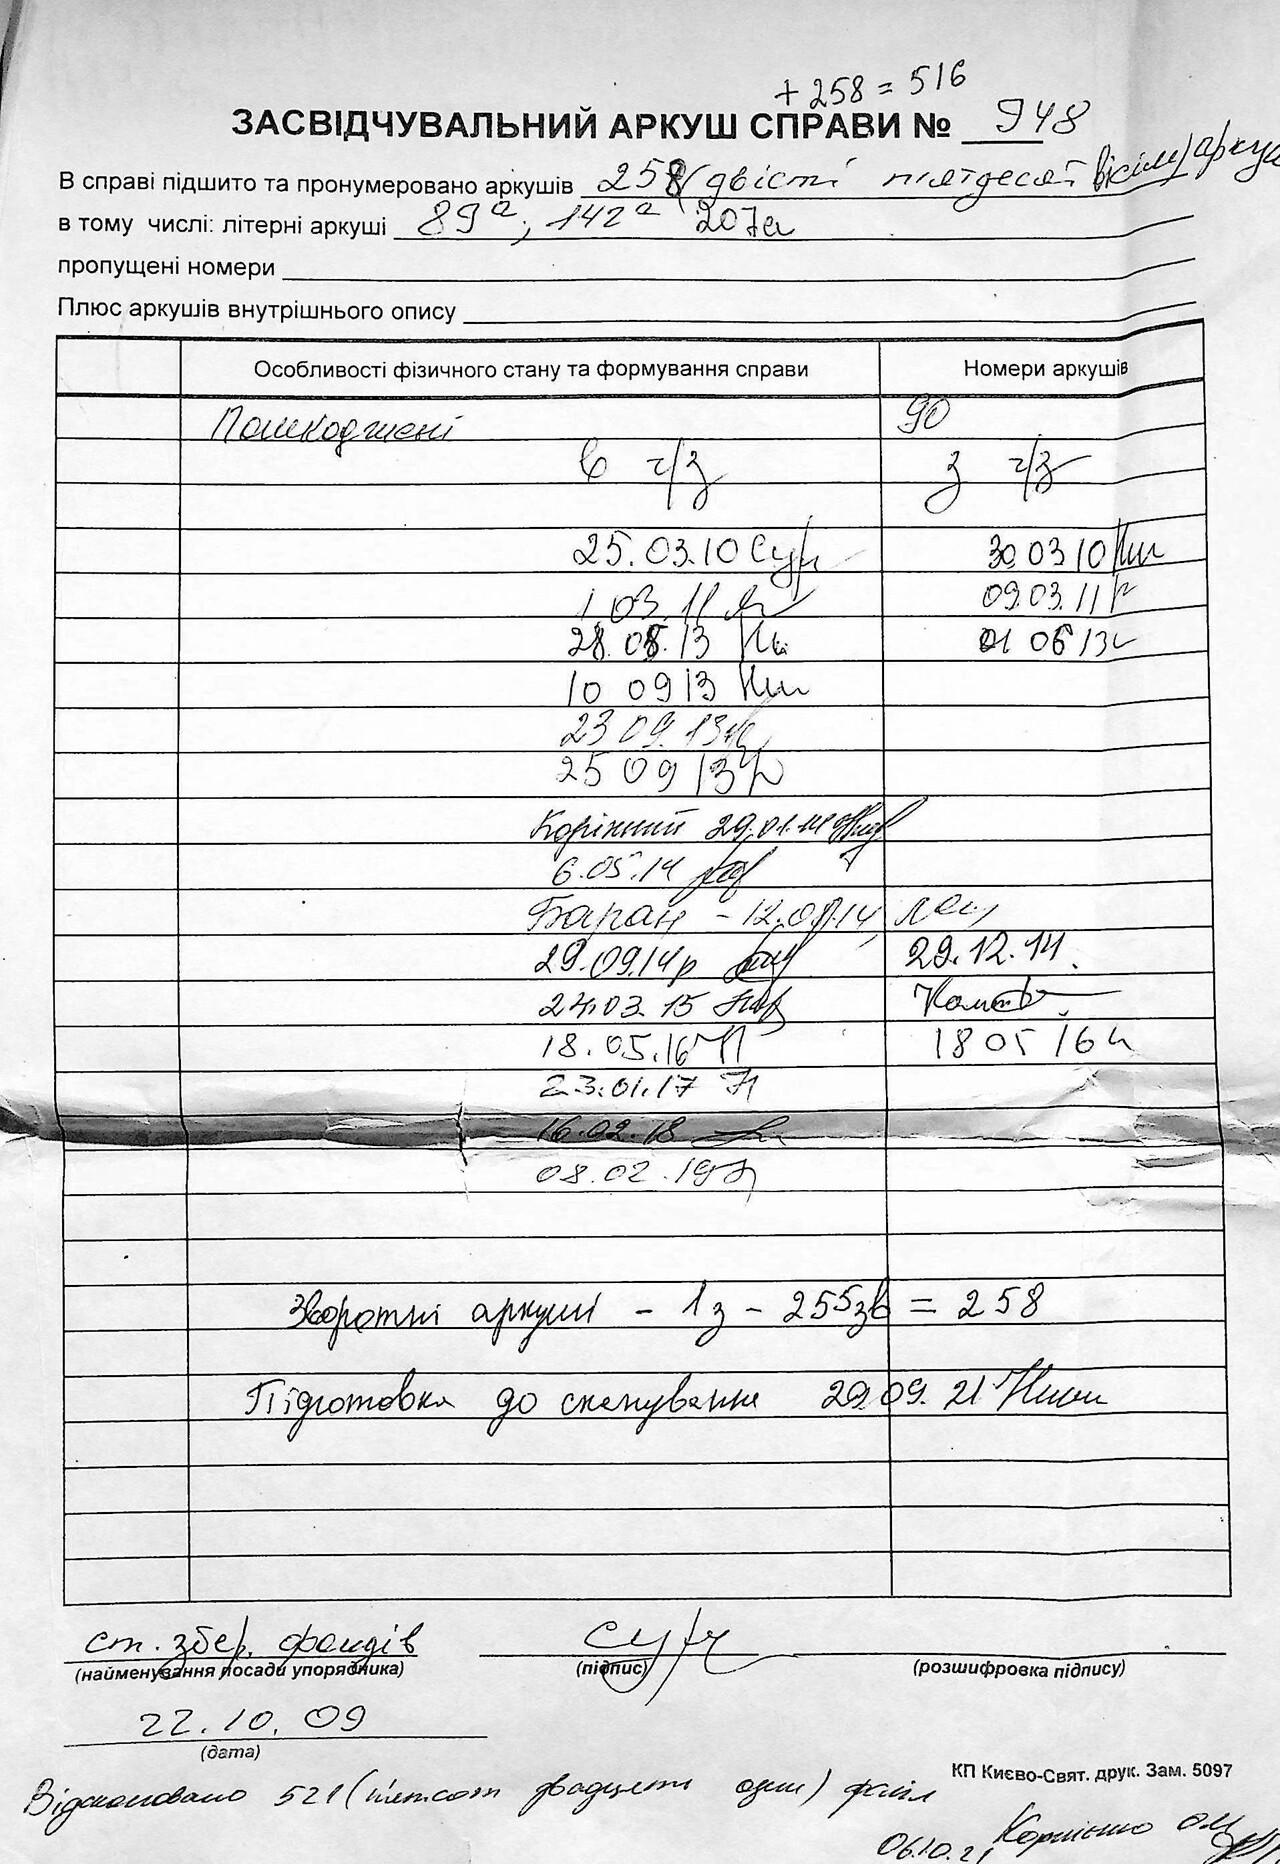 + 258 = 516
ЗАСВІДЧУВАЛЬНИЙ АРКУШ СПРАВИ № 948
В справі підшито та пронумеровано аркушів 258 (двісті п'ятдесят вісім) аркуш
в тому числі: літерні аркуші 89а; 142а 207а
пропущені номери
Плюс аркушів внутрішнього опису
Особливості фізичного стану та формування справи Номери аркушів
Пошкоджені 90
в ч/з з ч/з
25.03.10 30 03 10
1 03 11 09.03.11
28.05.13 01 06 13
10 09 13
23 09.13
25 09 13
29.01.14
6.05.14
Баран - 12.09.14
29.09.14р 29.12.14.
24.03 15
18.05.16 18 05 16
23.01.17
16.02.18
08.02.19
Зворотні аркуші - 1з - 255зв = 258
Підготовка до сканування 29.09.21
ст. збер. фондів
(найменування посади упорядника) (підпис) (розшифровка підпису)
22.10.09
(дата)
КП Києво-Свят. друк. Зам. 5097
Відскановано 521 (п'ятсот двадцять один) файл
06.10.21